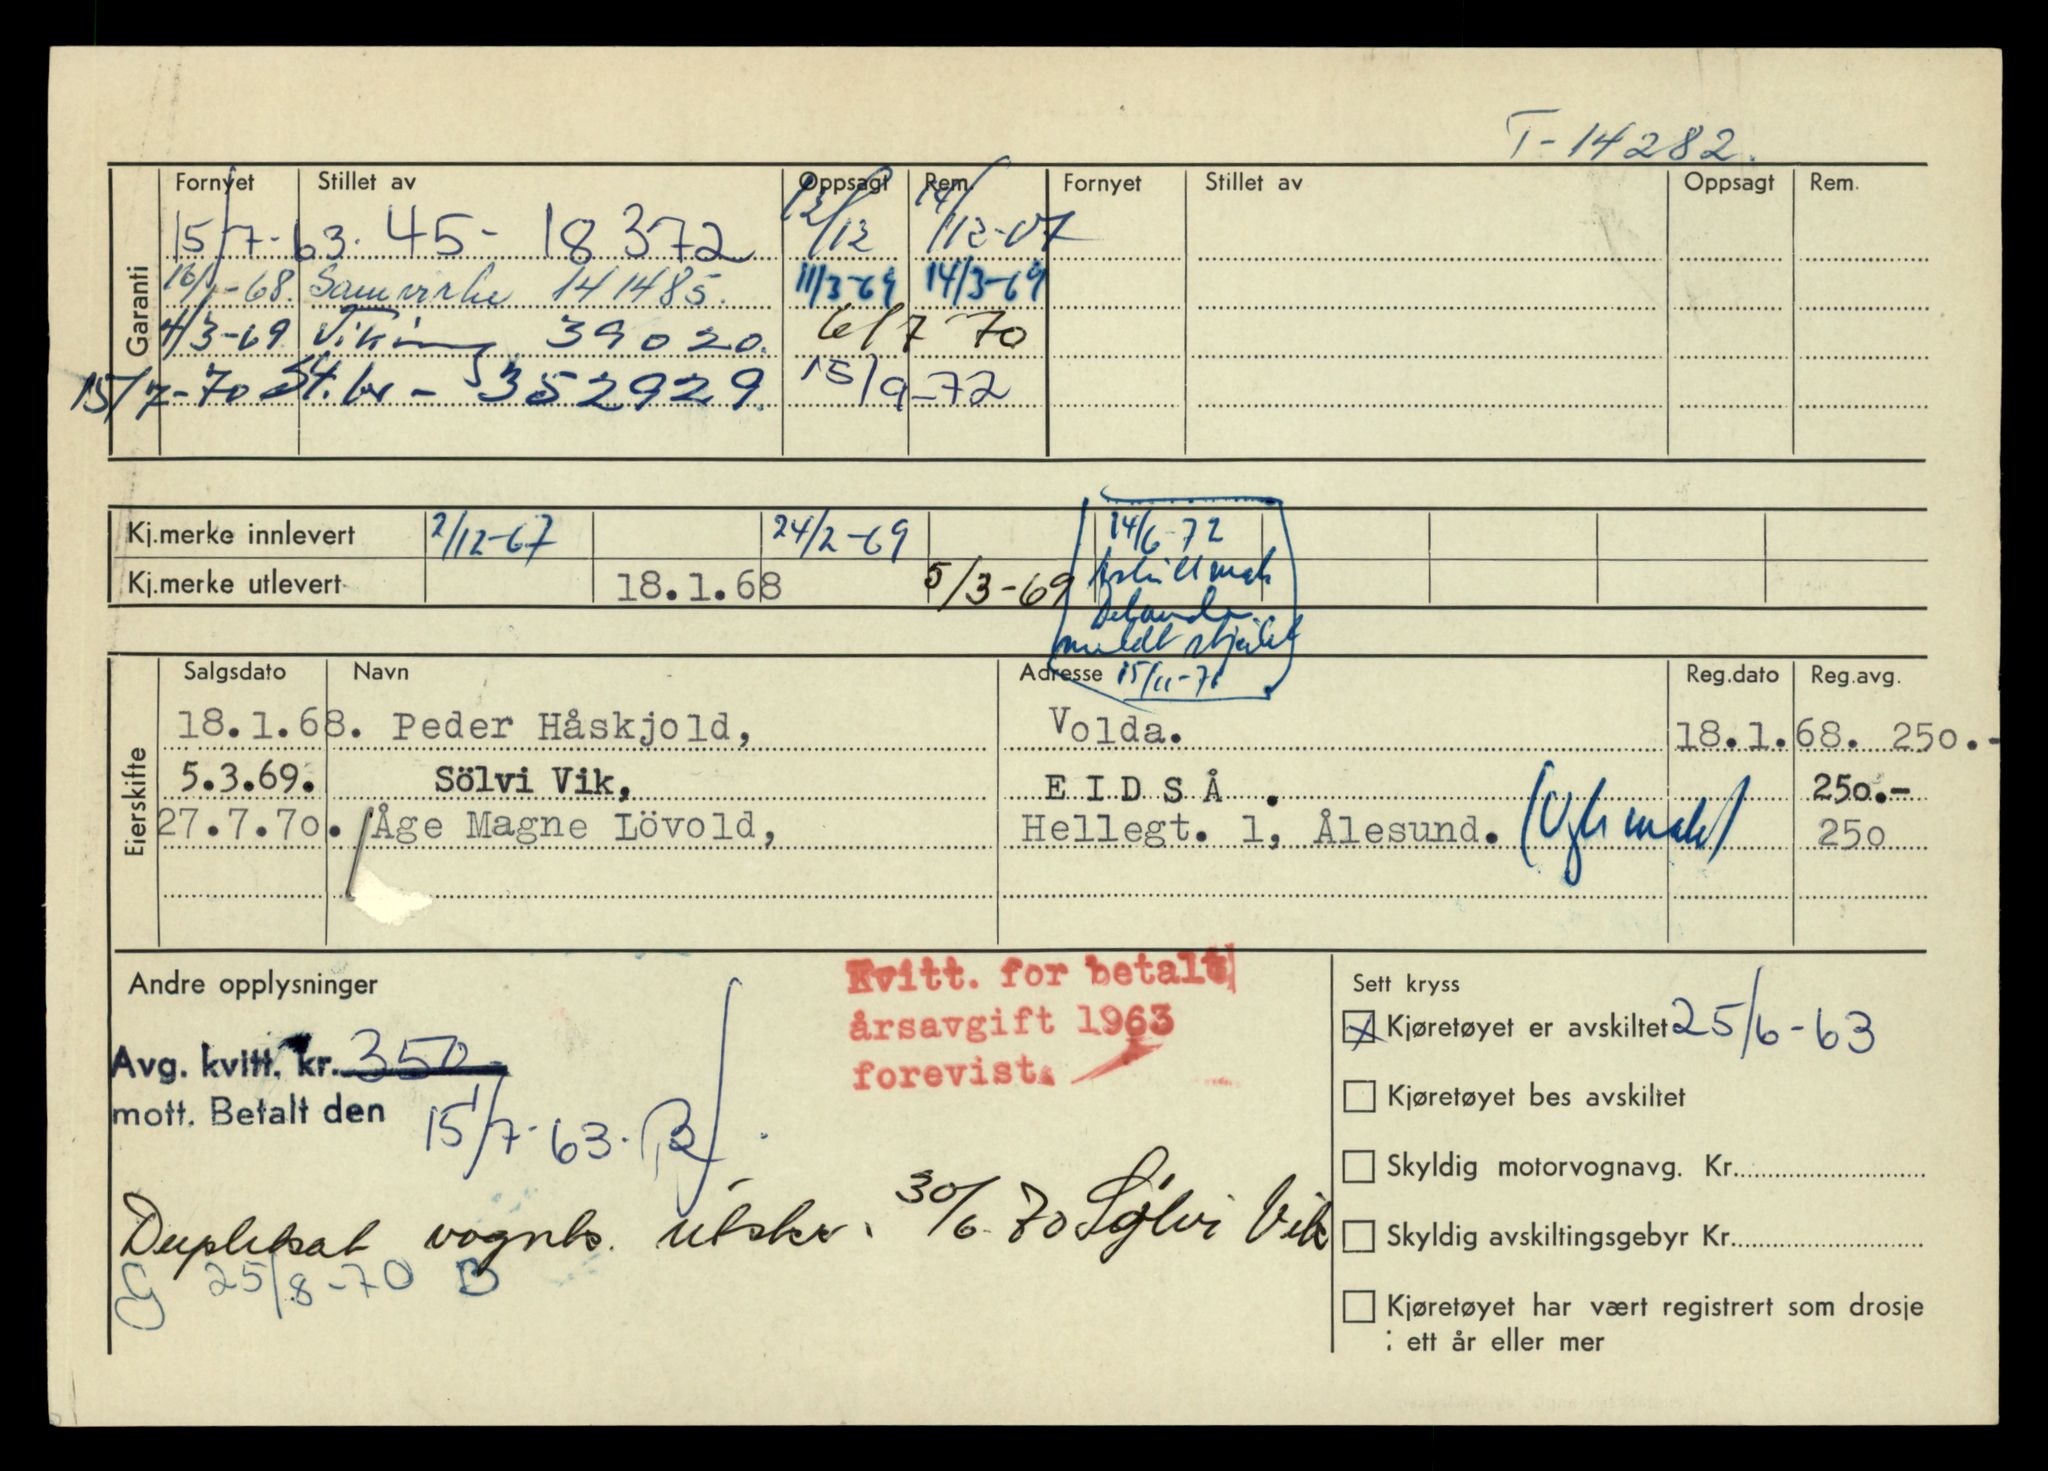 T-14282.
Fornyet Stillet av Oppsagt Rem. Fornyet Stillet av Oppsagt Rem.
Garanti
15/7-63. 45- 18372 12/12 14/12-67
16/1-68. Samvirke 141485. 11/3-69 14/3-69
4/3-69 Viking 39020. 6/7 70
15/7-70 St.br - 352929. 15/9-72
Kj.merke innlevert 2/12-67 24/2-69 14/6-72
Kj.merke utlevert 18.1.68 5/3-69
meldt stjålet
15/11-71
Eierskifte
Salgsdato Navn Adresse Reg.dato Reg.avg.
18.1.68. Peder Håskjold, Volda. 18.1.68. 250.-
5.3.69. Sölvi Vik, EIDSÅ . 250.-
27.7.70. Åge Magne Lövold, Hellegt. 1, Ålesund. 250
Andre opplysninger
Kvitt. for betalt
årsavgift 1963
forevist.
Avg. kvitt. kr. 350
mott. Betalt den 15/7-63.
Duplikat vognk. utskr. 30/6-70 Sølvi Vik
25/8-70 B
Sett kryss
Kjøretøyet er avskiltet 25/6-63
Kjøretøyet bes avskiltet
Skyldig motorvognavg. Kr.
Skyldig avskiltingsgebyr Kr.
Kjøretøyet har vært registrert som drosje
i ett år eller mer